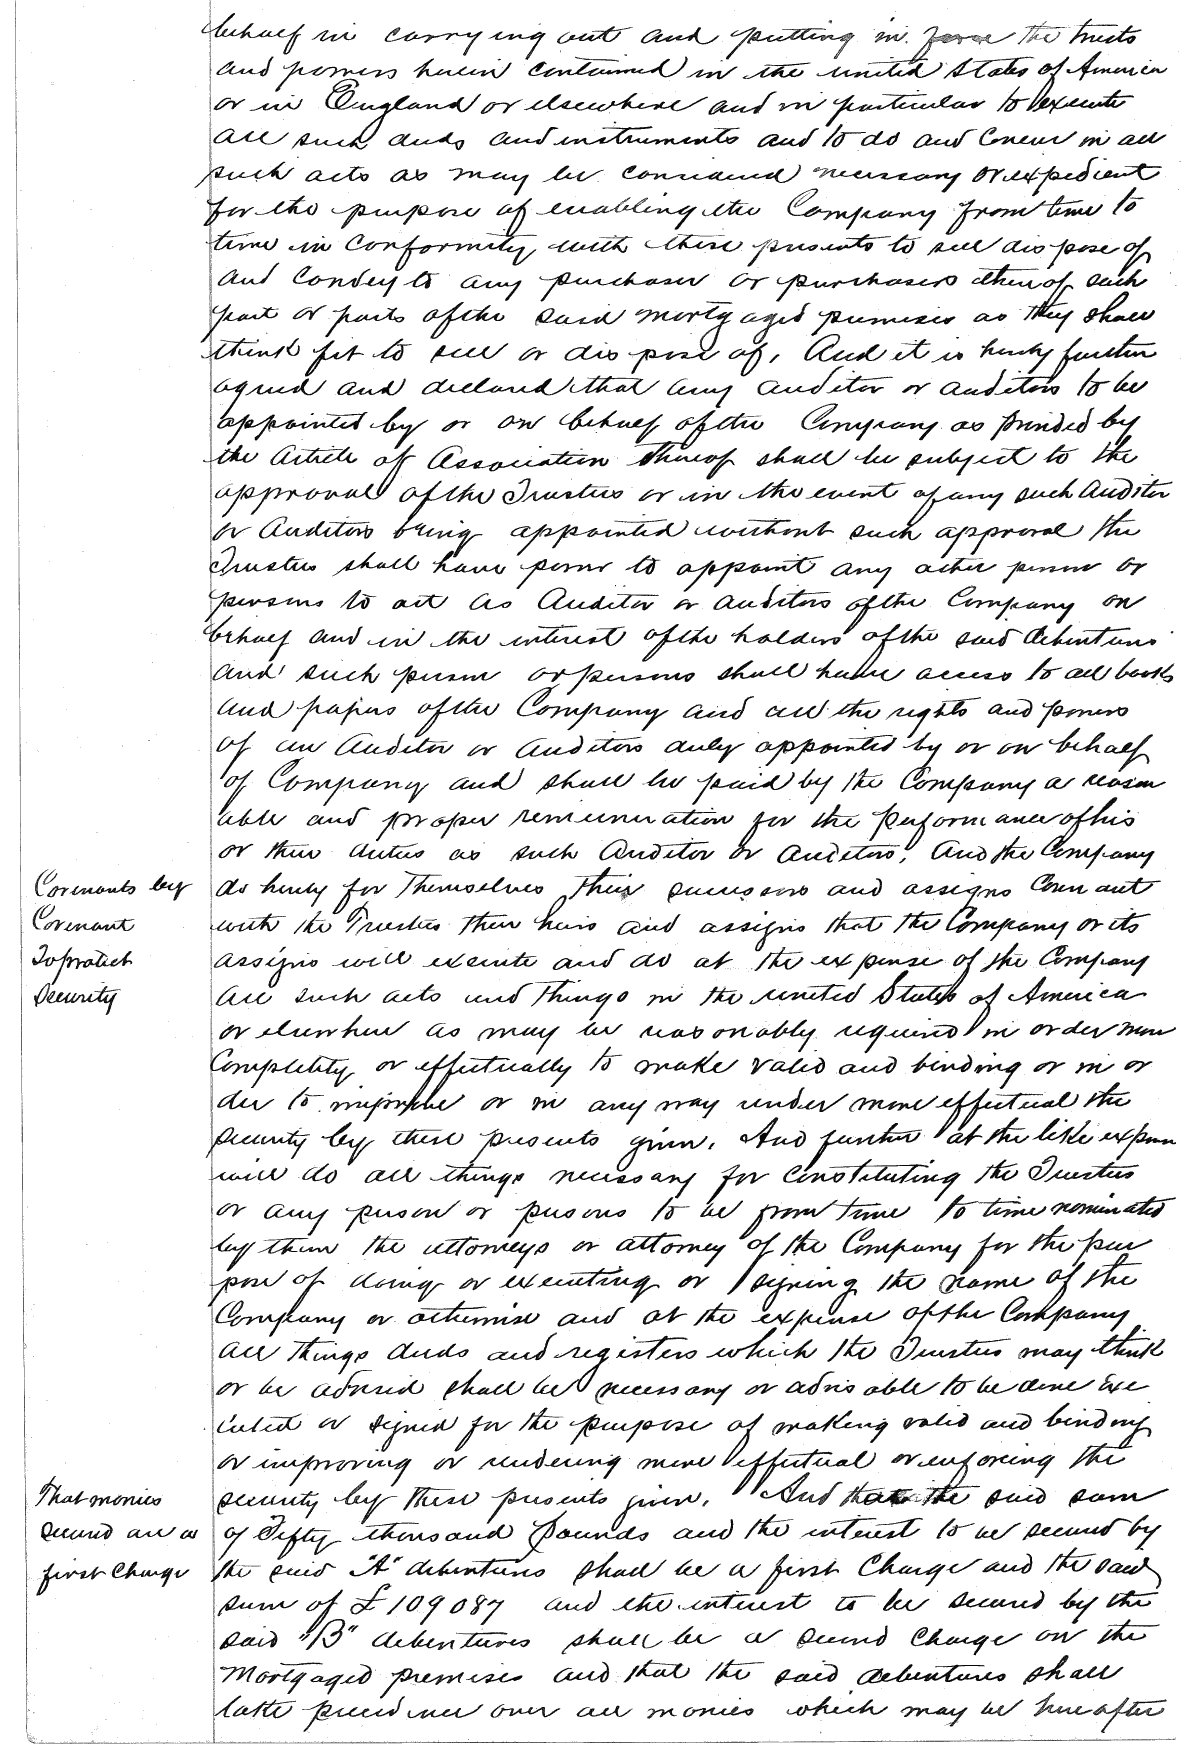 behalf in carrying out and putting in force the trusts
and powers herein contained in the united States of America
or in England or elsewhere and in particular to execute
all such deeds and instruments and to do and Concur in all
such acts as may be considered necessary or expedient
for the purpose of enabling the Company from time to
time in Conformity with these presents to sell dispose of
and Convey to any purchaser or purchasers thereof such
part or parts of the said mortgaged premises as they shall
think fit to sell or dispose of. And it is hereby further
agreed and declared that any auditor or auditors to be
appointed by or on behalf of the Company as provided by
the Article of Association thereof shall be subject to the
approval of the Trustees or in the event of any such Auditor
or Auditors being appointed without such approval the
Trustees shall have power to appoint any other person or
persons to act as Auditor or auditors of the Company on
behalf and in the interest of the holders of the said debentures
and such person or persons shall have access to all books
and papers of the Company and all the rights and powers
of an Auditor or Auditors duly appointed by or on behalf
of Company and shall be paid by the Company a reason
able and proper remuneration for the performance of his
or their duties as such Auditor or Auditors. And the Company
Covenants by do hereby for themselves their successors and assigns Covenant
Covenant with the Trustees their heirs and assigns that the Company or its
To protect assigns will execute and do at the expense of the Company
Security all such acts and things in the united States of America
or elsewhere as may be reasonably required in order more
Completely or effectually to make valid and binding or in or
der to improve or in any way render more effectual the
security by these presents given. And further at the like expense
will do all things necessary for Constituting the Trustees
or any person or persons to be from time to time nominated
by them the attorneys or attorney of the Company for the pur
pose of doing or executing or signing the name of the
Company or otherwise and at the expense of the Company
all things deeds and registers which the Trustees may think
or be advised shall be necessary or advisable to be done exe
cuted or signed for the purpose of making valid and binding
or improving or rendering more effectual or enforcing the
That monies security by these presents given. And that the said sum
secured are a of Fifty thousand Pounds and the interest to be secured by
first Charge the said "A" debentures shall be a first Charge and the said
sum of £109087 and the interest to be secured by the
said "B" debentures shall be a second Charge on the
Mortgaged premises and that the said debentures shall
take precedence over all monies which may be hereafter